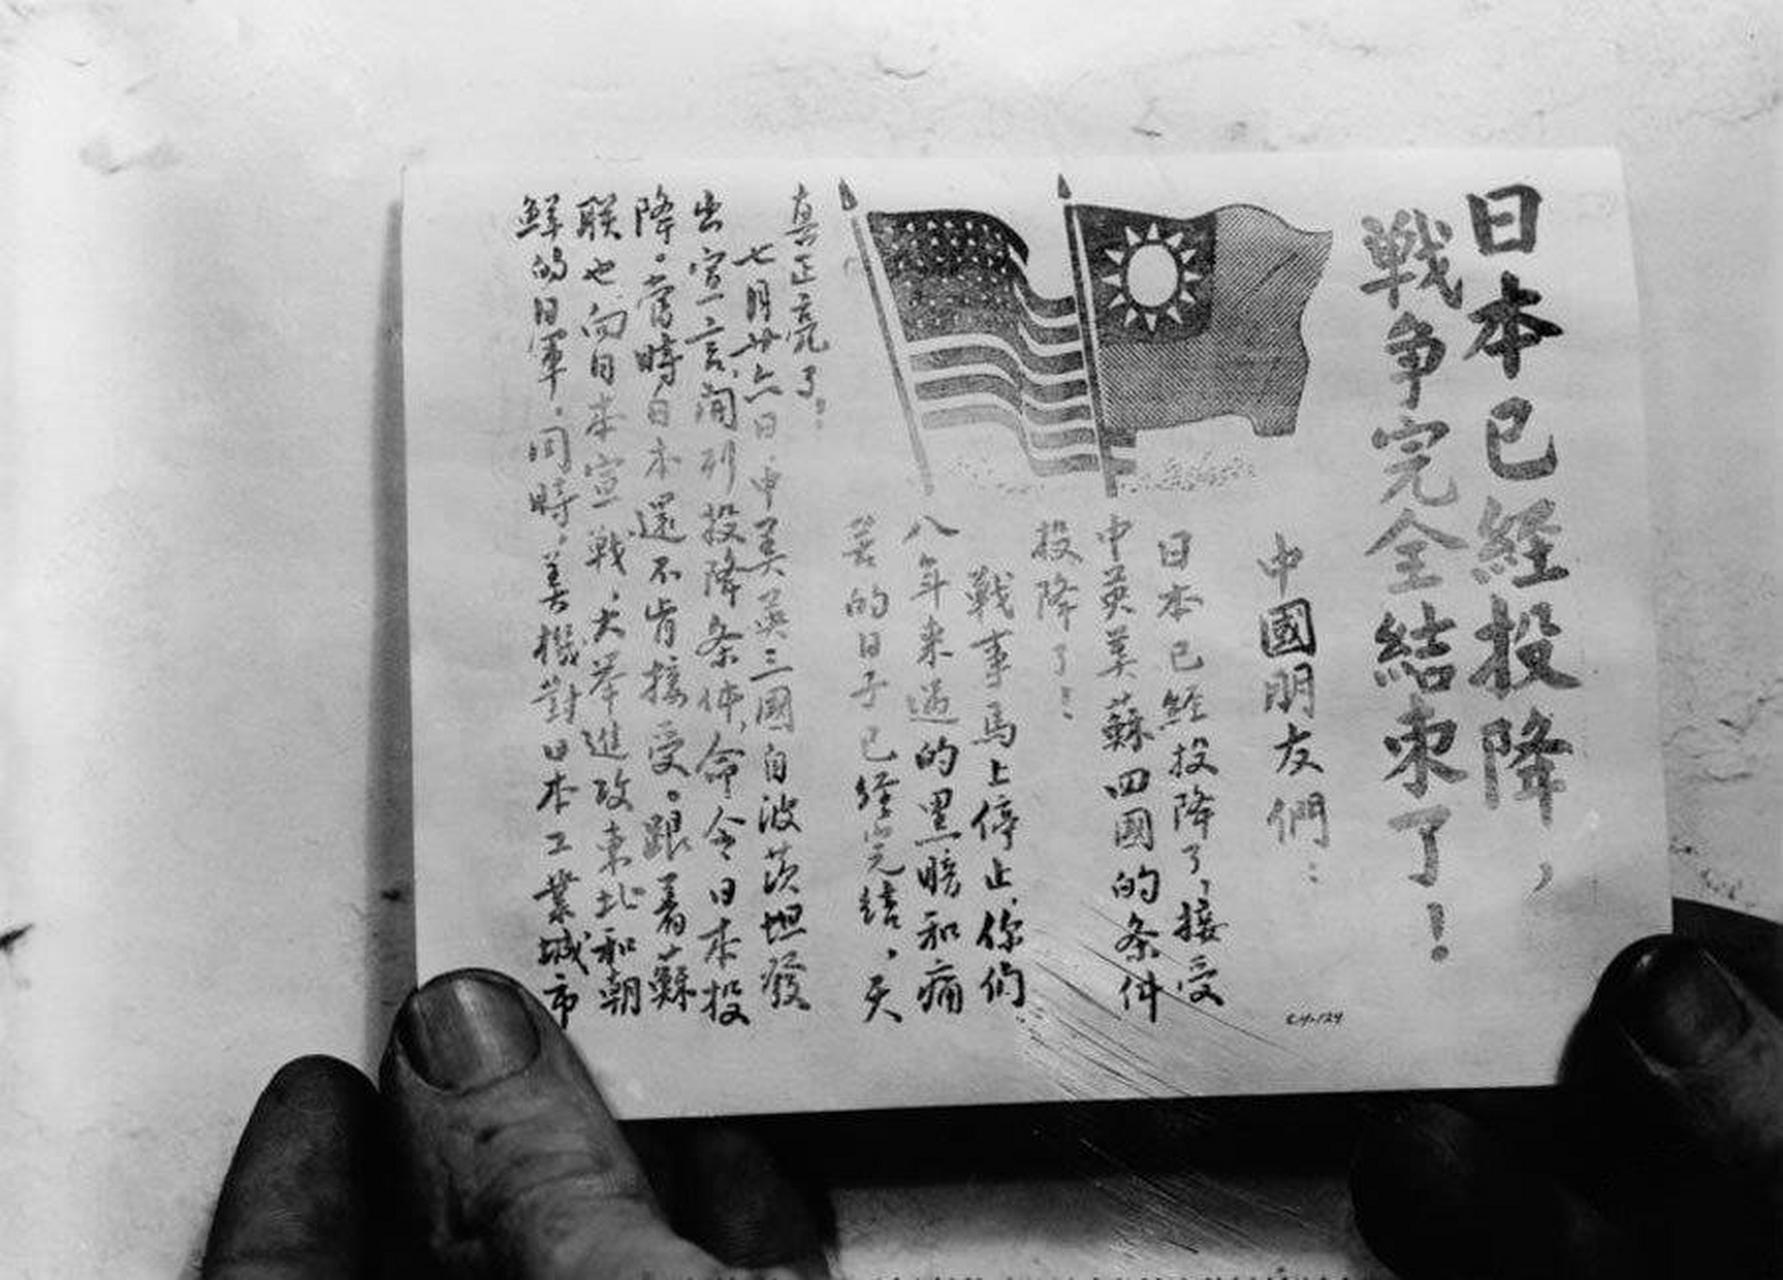 日本已経投降，
戦争完全結束了！
中國朋友們：
日本已経投降了，接受
中英美蘇四國的条件
投降了！
戦事馬上停止，你们
八年来過的黑暗和痛
苦的日子已経完结，天
真正亮了。
七月廿六日，中美英三國自波茨坦發
出宣言，開列投降条件，命令日本投
降。當時日本還不肯接受。跟着，蘇
联也向日本宣戦，大举進攻東北和朝
鮮的日軍，同時，美機對日本工業城市
C.H.-124